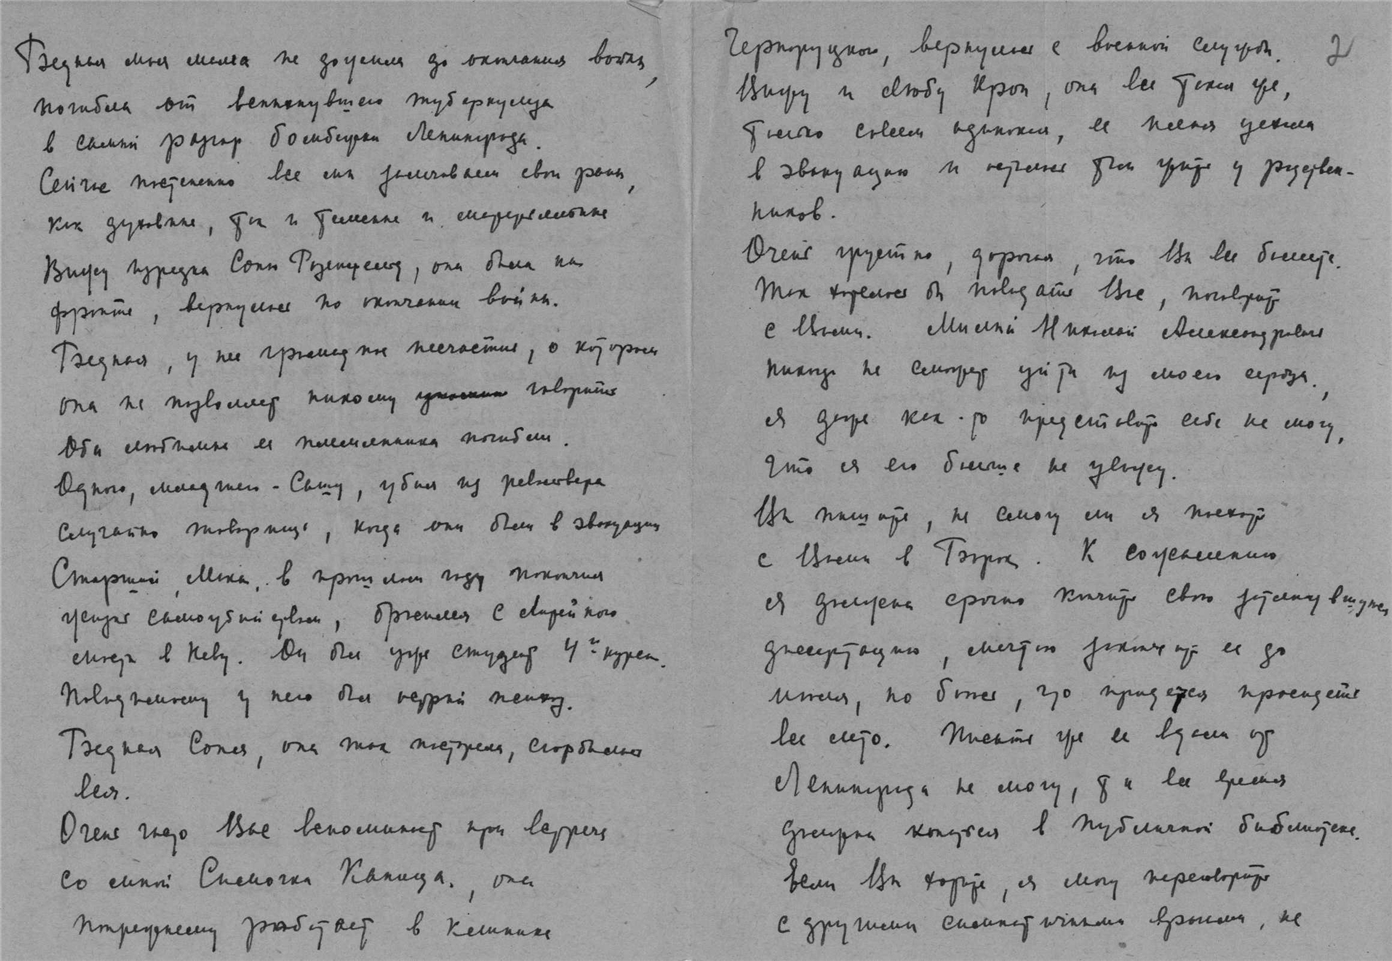 Бедная моя мама не дожила до окончания войны,
погибла от вспыхнувшего туберкулеза
в самый разгар бомбежки Ленинграда.
Сейчас постепенно все мы залечиваем свои раны,
как духовные, так и телесные и материальные
Вижу изредка Соню, она была на
фронте, вернулась по окончании войны.
Бедная, у нее громадное несчастие, о котором
она не позволяет никому говорить
Оба любимые ее племянника погибли.
Одного, младшего - Сашу, убил из револьвера
случайно товарищ, когда они были в эвакуации
Старший, Мика, в прошлом году покончил
жизнь самоубийством, бросился с Литейного
моста в Неву. Он был уже студент 4го курса.
Повидимому у него был острый психоз.
Бедная Соня, она так постарела, сгорбилась
вся.
Очень часто Вас вспоминает при встрече
со мной Симочка Каница, она
попрежнему работает в клинике
2
Черноруцкого, вернулась с военной службы.
Вижу и Любу Крон, она все такая же,
только совсем одинокая, ее мама уехала
в эвакуацию и осталась там жить у родствен-
ников.
Очень грустно, дорогая, что Вы все болеете.
Так хотелось бы повидать Вас, поговорить
с Вами. Милый Николай Александрович
никогда не сможет уйти из моего сердца,
я даже как-то представить себе не могу,
что я его больше не увижу.
Вы пишите, не смогу ли я поехать
с Вами в Боровое. К сожалению
я должна срочно кончить свою затянувшуюся
диссертацию, мечтаю закончить ее до
июля, но боюсь, что придется просидеть
все лето. Писать же ее вдали от
Ленинграда не могу, т.к. все время
должна копаться в Публичной библиотеке.
Если Вы хотите, я могу переговорить
с другими симпатичными врачами, не